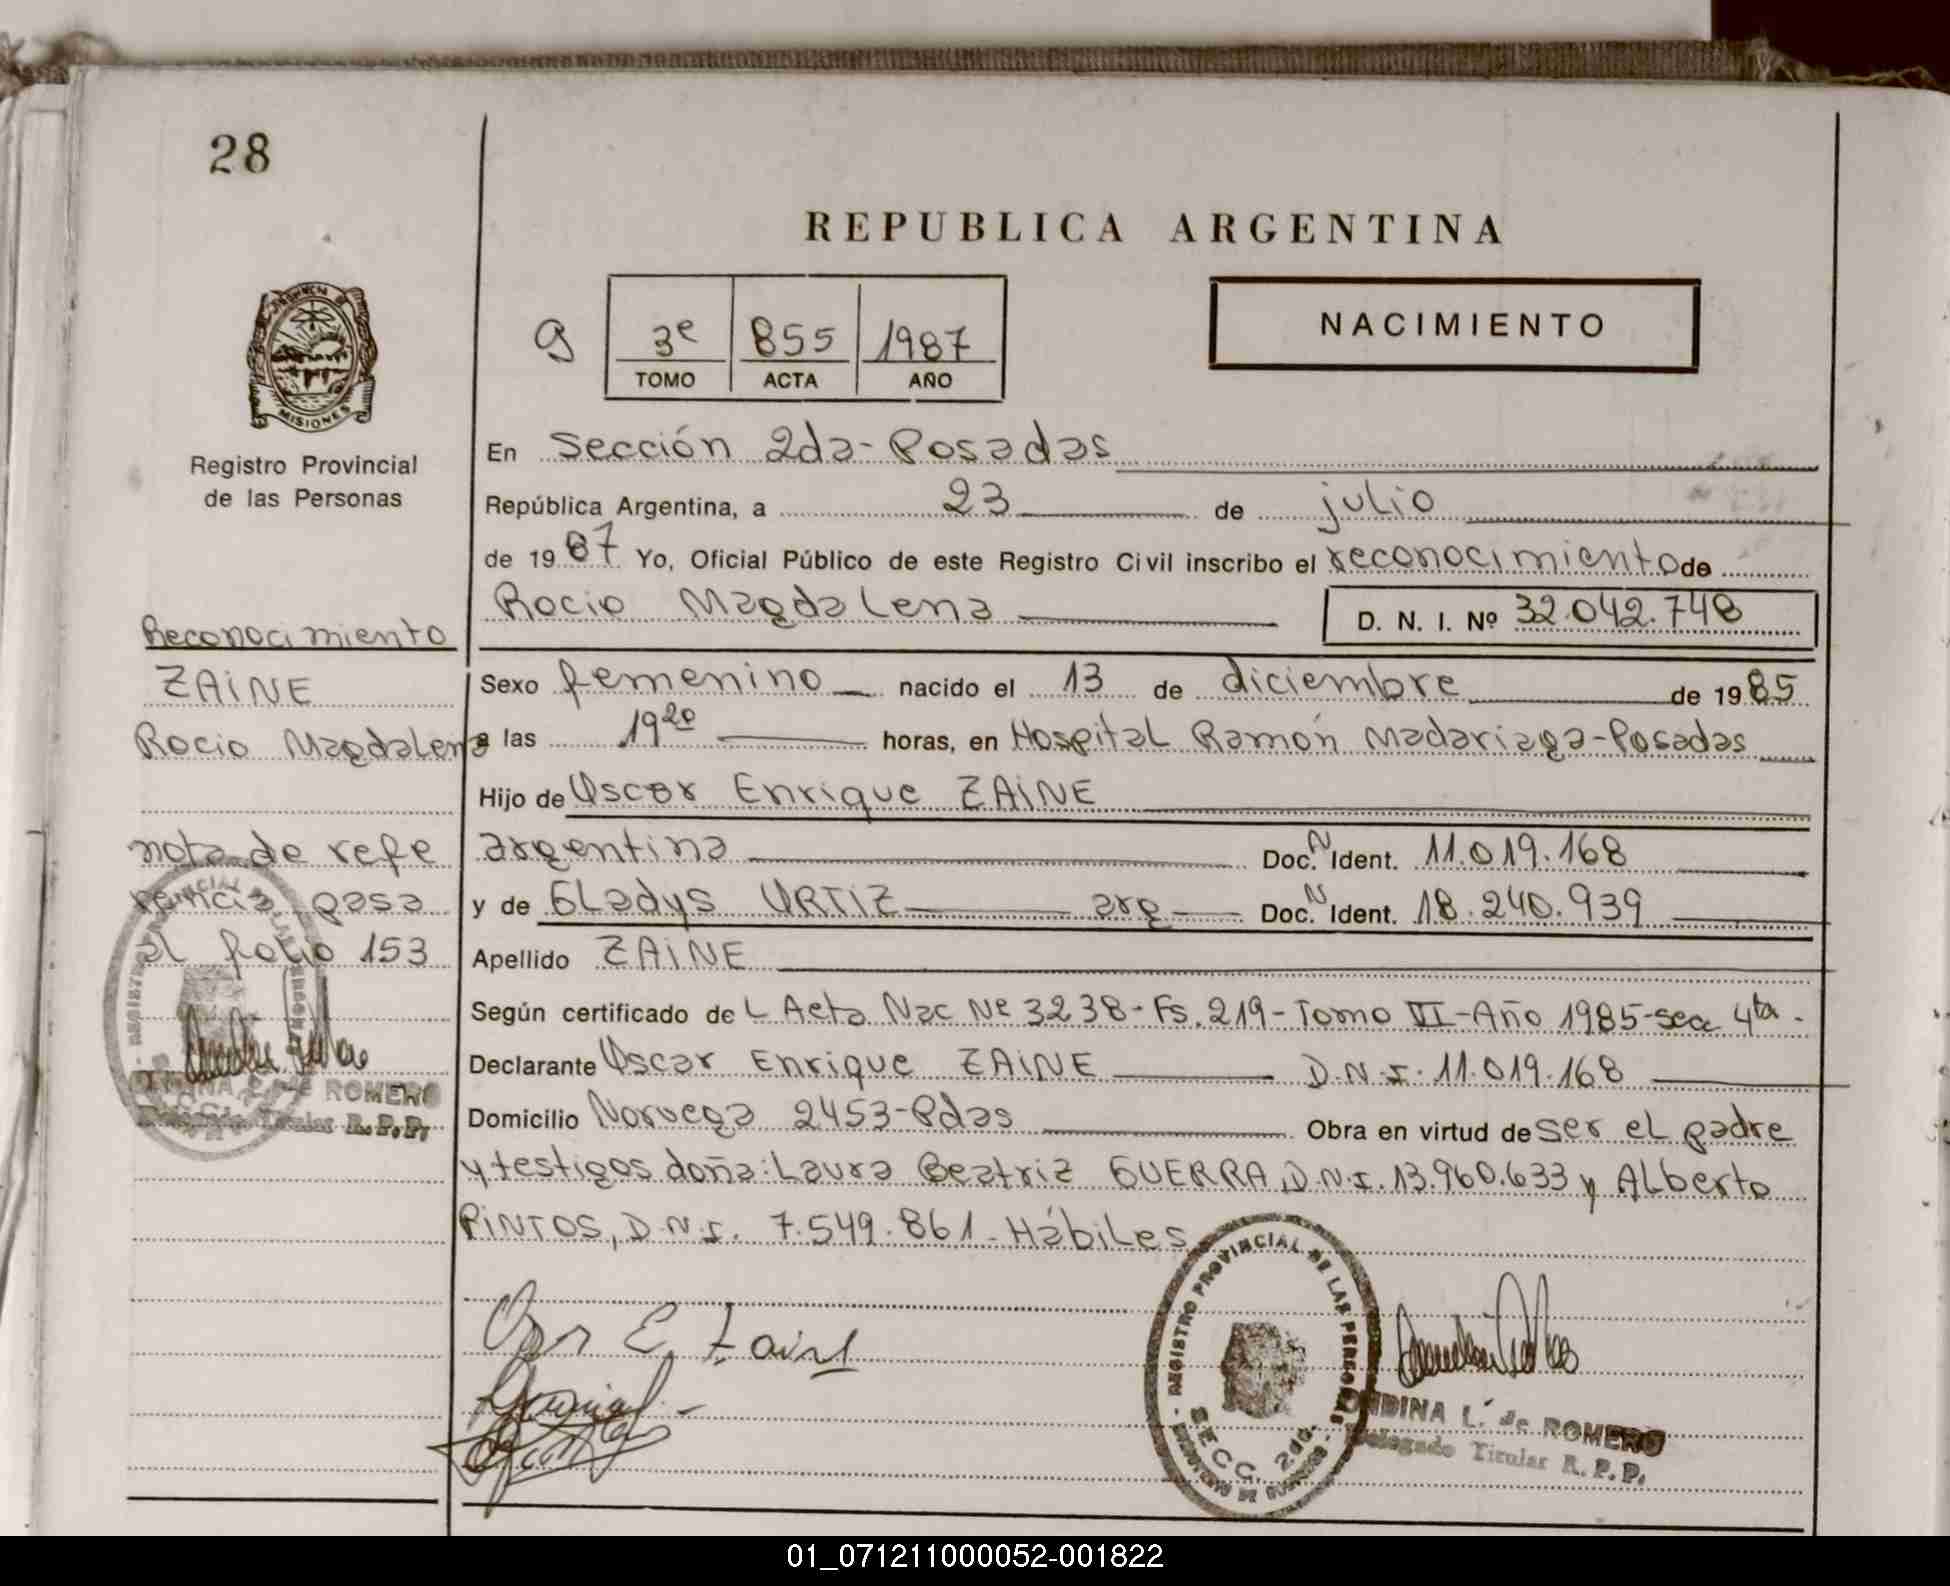 28
REPUBLICA ARGENTINA
g
3e 855 1987
TOMO ACTA AÑO
NACIMIENTO
MISIONES
Registro Provincial
de las Personas
En Sección 2da-Posadas
República Argentina, a 23 de julio
de 1987 Yo, Oficial Público de este Registro Civil inscribo el reconocimiento de
Rocio Magdalena D. N. I. Nº 32.042.748
Reconocimiento
ZAINE
Rocio Magdalena
nota de refe
rencia pasa
al folio 153
ROMERO
Titular R. P. P.
Sexo femenino nacido el 13 de diciembre de 1985
a las 19 20 horas, en Hospital Ramón Madariaga-Posadas
Hijo de Oscar Enrique ZAINE
argentina Doc. N Ident. 11.019.168
y de Gladys URTIZ arg Doc. N Ident. 18.240.939
Apellido ZAINE
Según certificado de L Acta Nac Nº 3238-Fs.219-Tomo VI-Año 1985-secc 4ta-
Declarante Oscar Enrique ZAINE D.N.I. 11.019.168
Domicilio Noruega 2453-Pdas Obra en virtud de ser el padre
y testigos doña: Laura Beatriz GUERRA, D.N.I. 13.960.633 y Alberto
PINTOS, D.N.I. 7.549.861-Hábiles
REGISTRO PROVINCIAL DE LAS PERSONAS
SECC. 2da.
L. de ROMERO
Delegado Titular R. P. P.
01_071211000052-001822